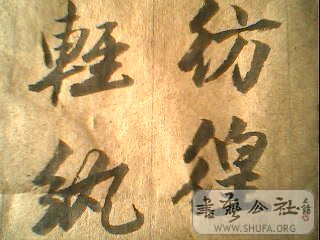 彷徨
輕紈
書藝公社
WWW.SHUFA.ORG